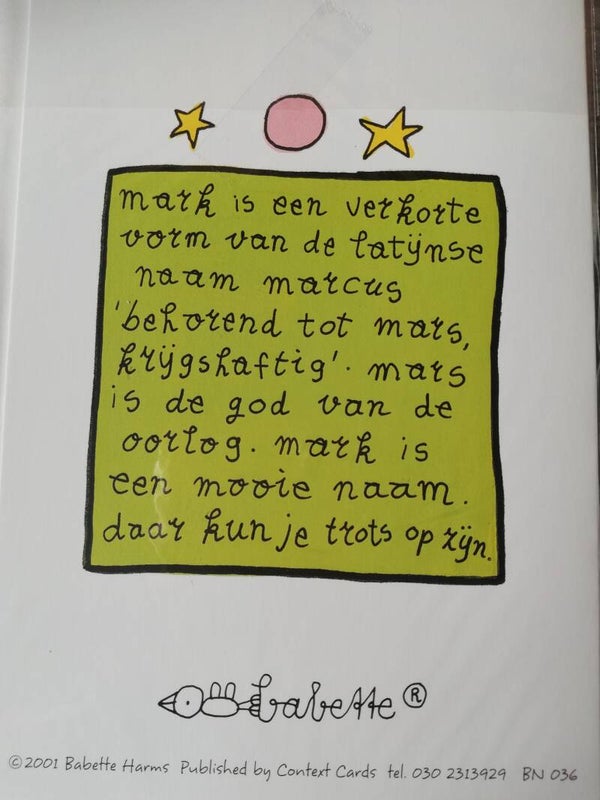 mark is een verkorte
vorm van de latijnse
naam marcus
'behorend tot mars,
krijgshaftig'. mars
is de god van de
oorlog. mark is
een mooie naam.
daar kun je trots op zijn.
babette ®
©2001 Babette Harms Published by Context Cards tel. 030 2313929 BN 036